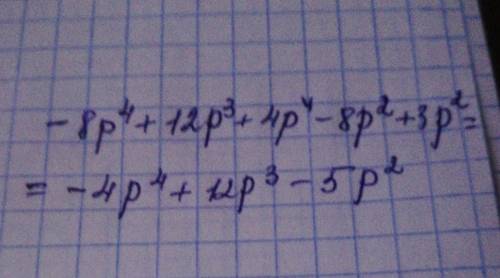 -8p⁴+12p³+4p⁴-8p²+3p²=
=-4p⁴+12p³-5p²